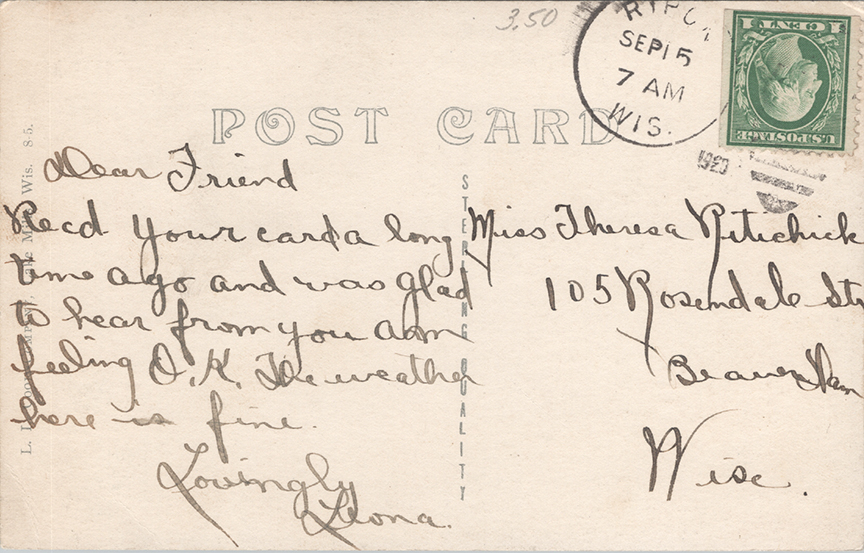 3.50
RIPO
SEP 15
7 AM
WIS.
1920
1 CENT 1
U.S. POSTAGE
POST CARD
Dear Friend
Recd your card a long
time ago and was glad
to hear from you am
feeling O.K. The weather
here is fine.
Lovingly
Leona.
STERLING QUALITY
Miss Theresa Ritichick
105 Rosendale Str
Beaver Dam
Wisc.
L.
Wis. 8-5.